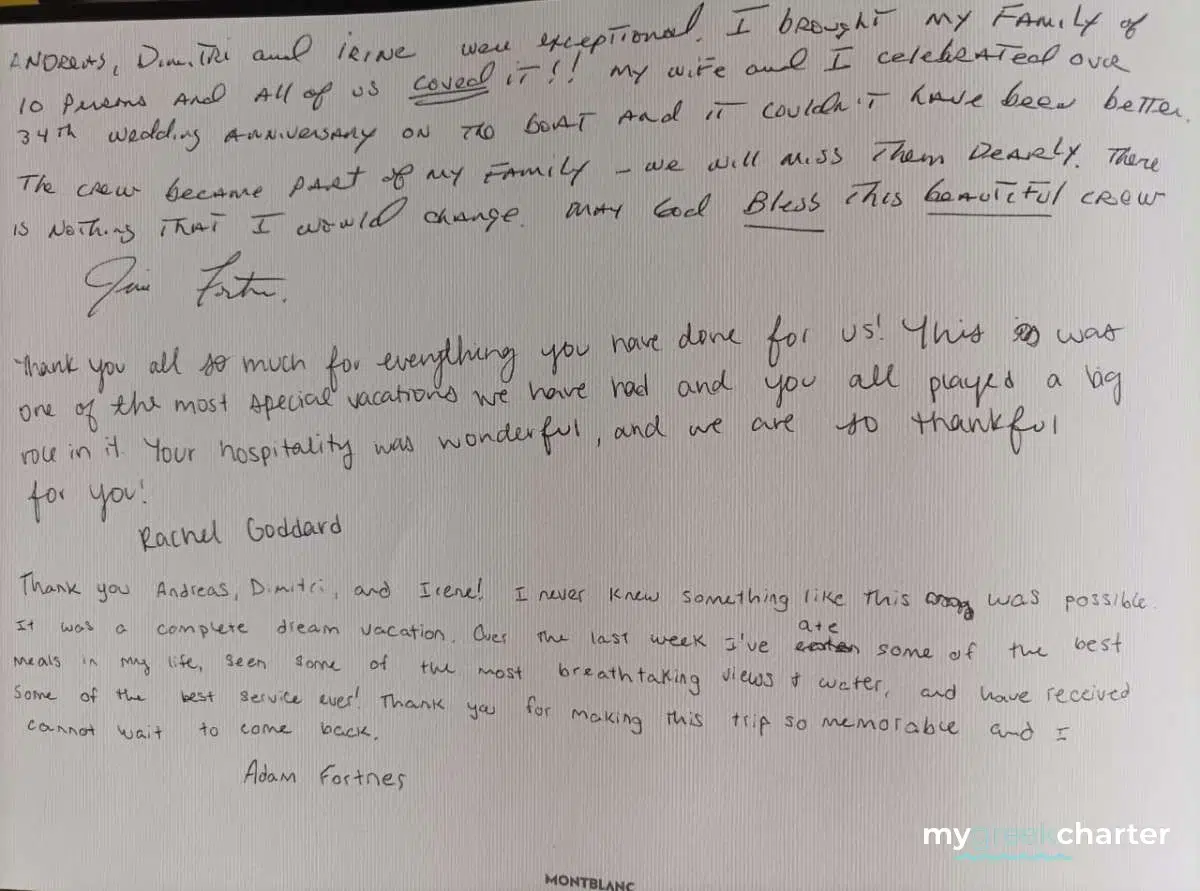 ANDREAS, Dimitri and irine were exceptional. I brought my Family of
10 persons and All of us loved it!! My wife and I celebrated our
34th wedding Anniversary on the boat and it couldn't have been better.
The crew became part of my Family - we will miss them Dearly. There
is Nothing that I would change. May God Bless this beautiful crew
Thank you all so much for everything you have done for us! This was
one of the most special vacations we have had and you all played a big
role in it. Your hospitality was wonderful, and we are so thankful
for you!
Rachel Goddard
Thank you Andreas, Dimitri, and Irene! I never knew something like this was possible.
It was a complete dream vacation. Over the last week I've ate some of the best
meals in my life, seen some of the most breathtaking views & water, and have received
some of the best service ever! Thank you for making this trip so memorable and I
cannot wait to come back.
Adam Fortner
mygreekcharter
MONTBLANC